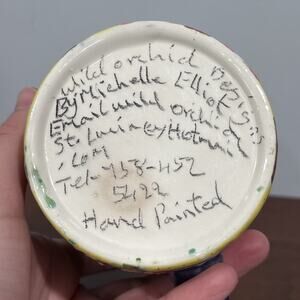 Wild orchid Designs
By Michelle Elliott
Email wild orchid
St. Lucia@Hotmail
.com
Tel-758-452
5422
Hand Painted